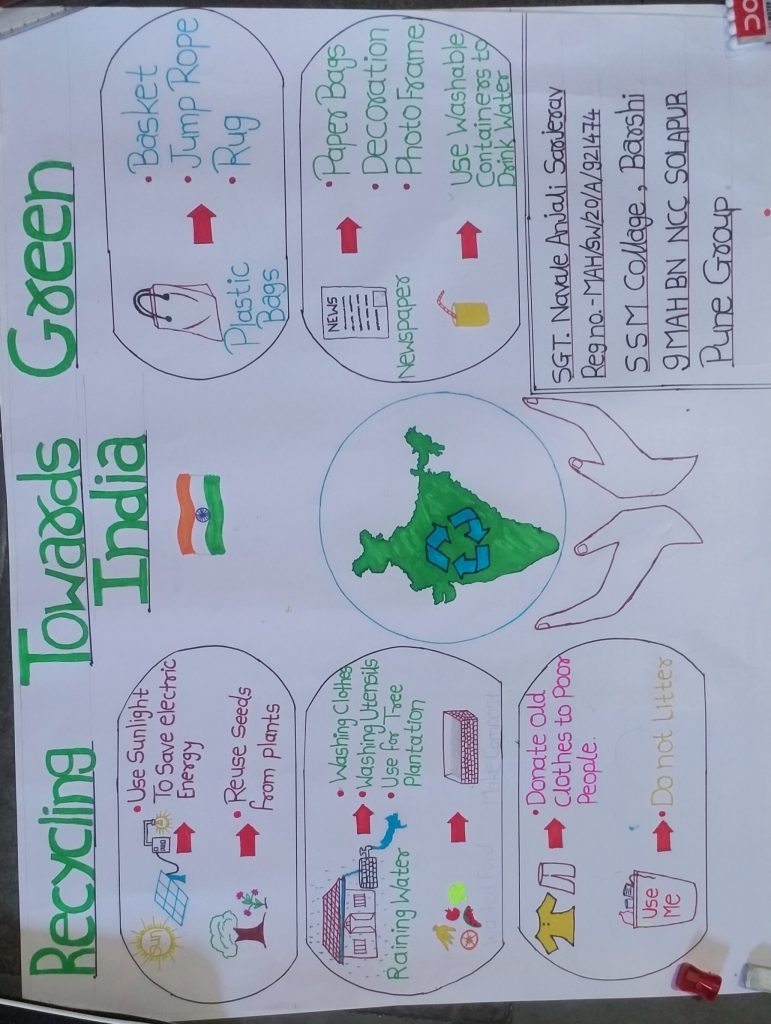 Recycling Towards Green
India
• Use Sunlight
To Save electric
Energy
Sun
• Reuse seeds
from plants
• Washing Clothes
• Washing Utensils
• Use for Tree
Plantation
Raining Water
• Donate Old
Clothes to Poor
People.
• Do not Litter
Use
Me
• Basket
• Jump Rope
• Rug
Plastic
Bags
• Paper Bags
• Decoration
• Photo Frame
NEWS
Newspaper
Use Washable
Containers to
Drink Water
SGT. Navale Anjali Sarjerav
Reg no.-MAH/SW/20/A/921474
S S M. Collage, Barshi
9 MAH BN NCC SOLAPUR
Pune Group
DO